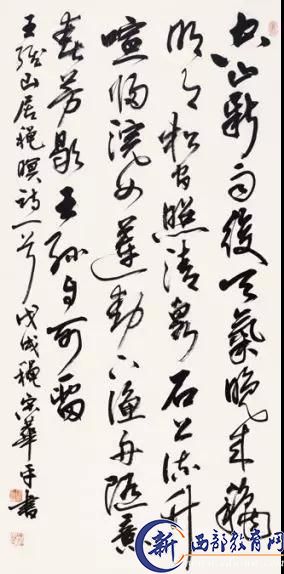 空山新雨後天氣晚來龝
明月松間照清泉石上流竹
喧歸浣女蓮動下漁舟隨意
春芳歇王孫自可留
王維山居秋暝詩一首戊戌秋宗華手書
新 西部教育网